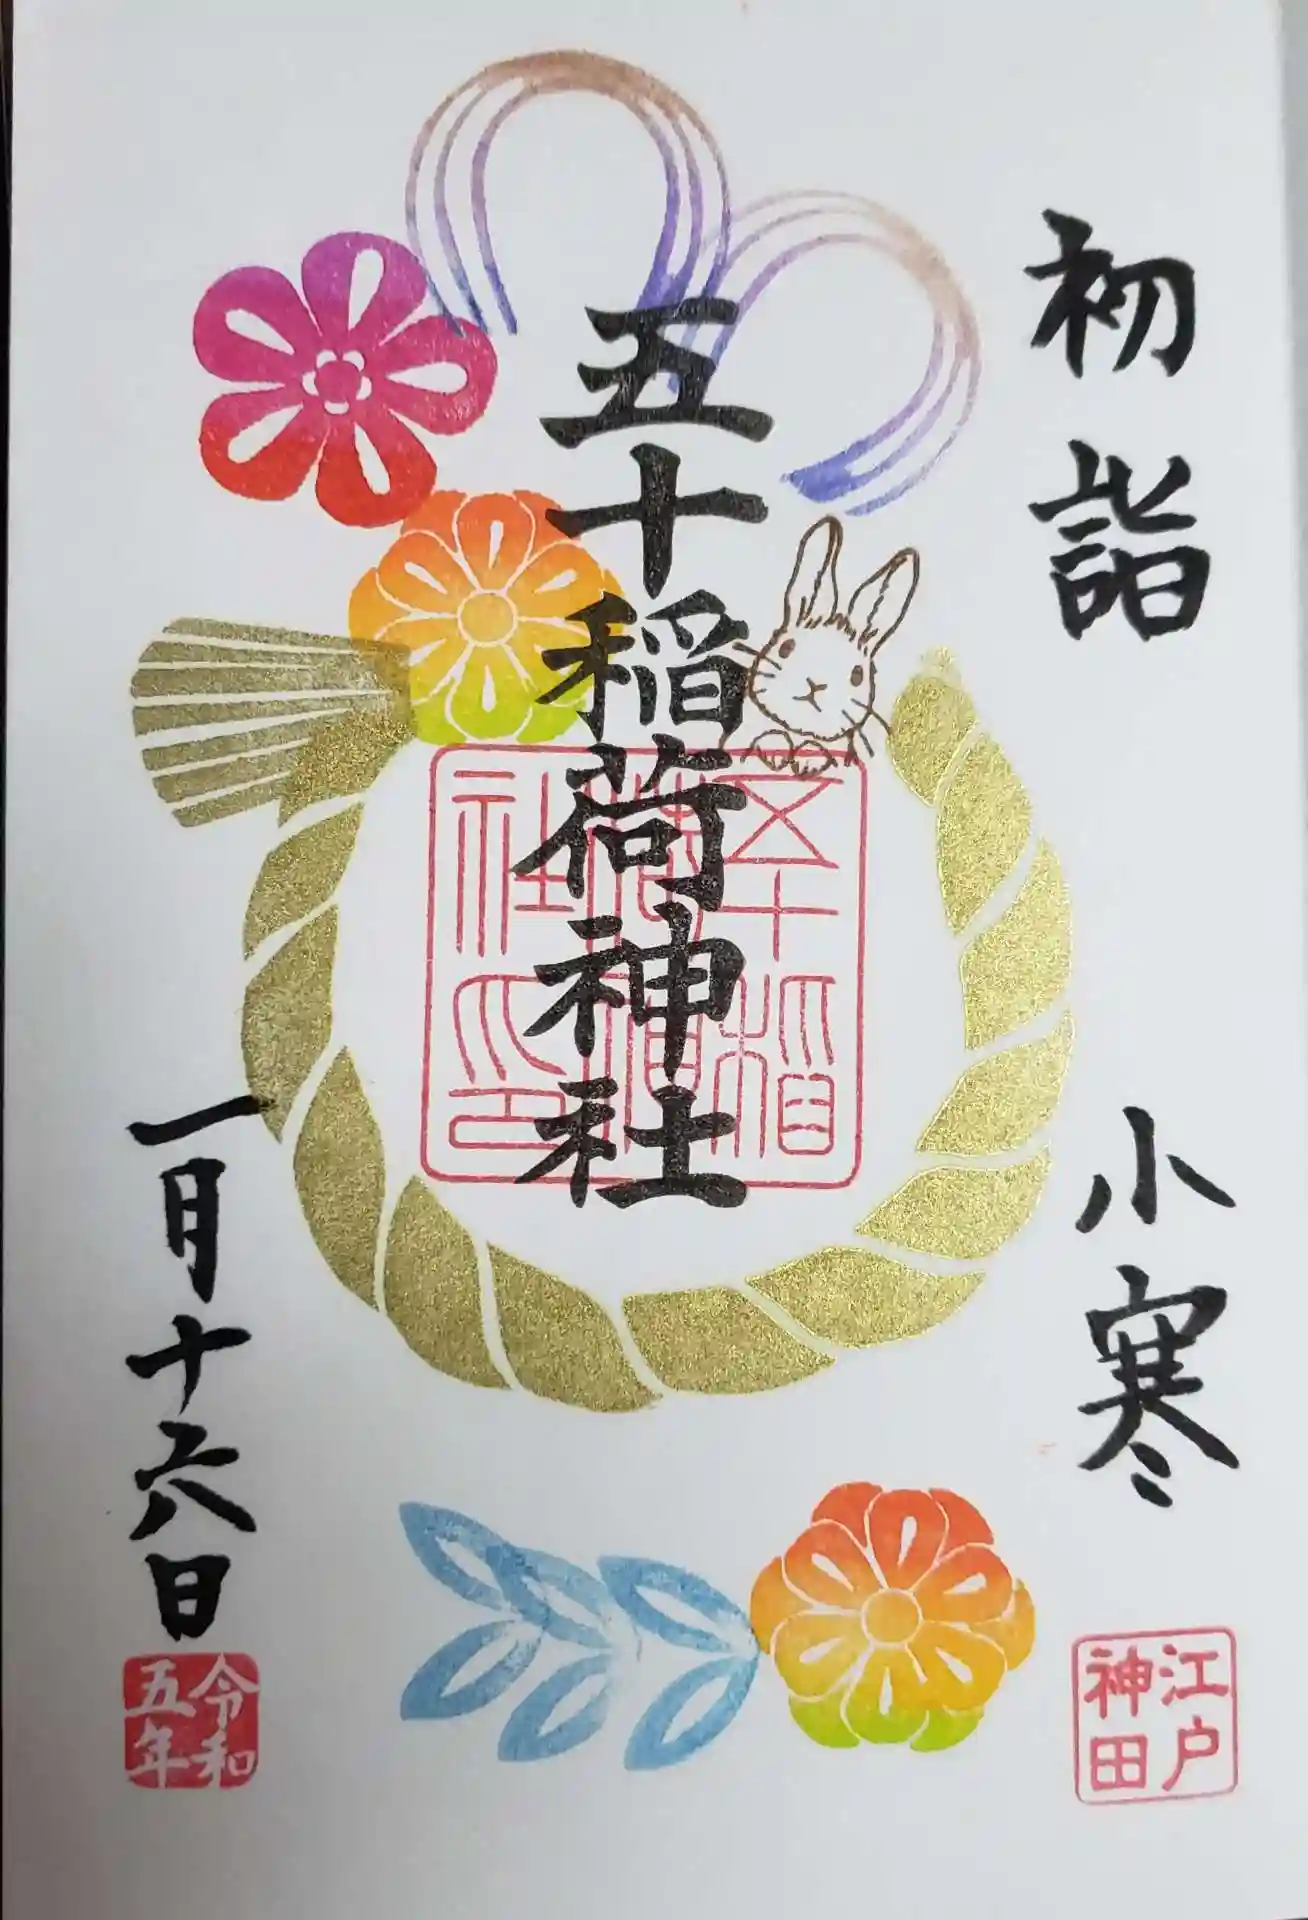 初詣
小寒
江戸
神田
五十稲荷神社
五十稲
荷神社
一月十六日
令和
五年